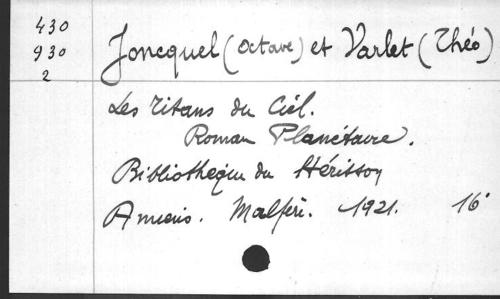 430
930
2
Joncquel (Octave) et Varlet (Théo)
Les Titans du Ciel.
Roman Planétaire.
Bibliothèque du Hérisson
Amiens. Malfère. 1921. 16°